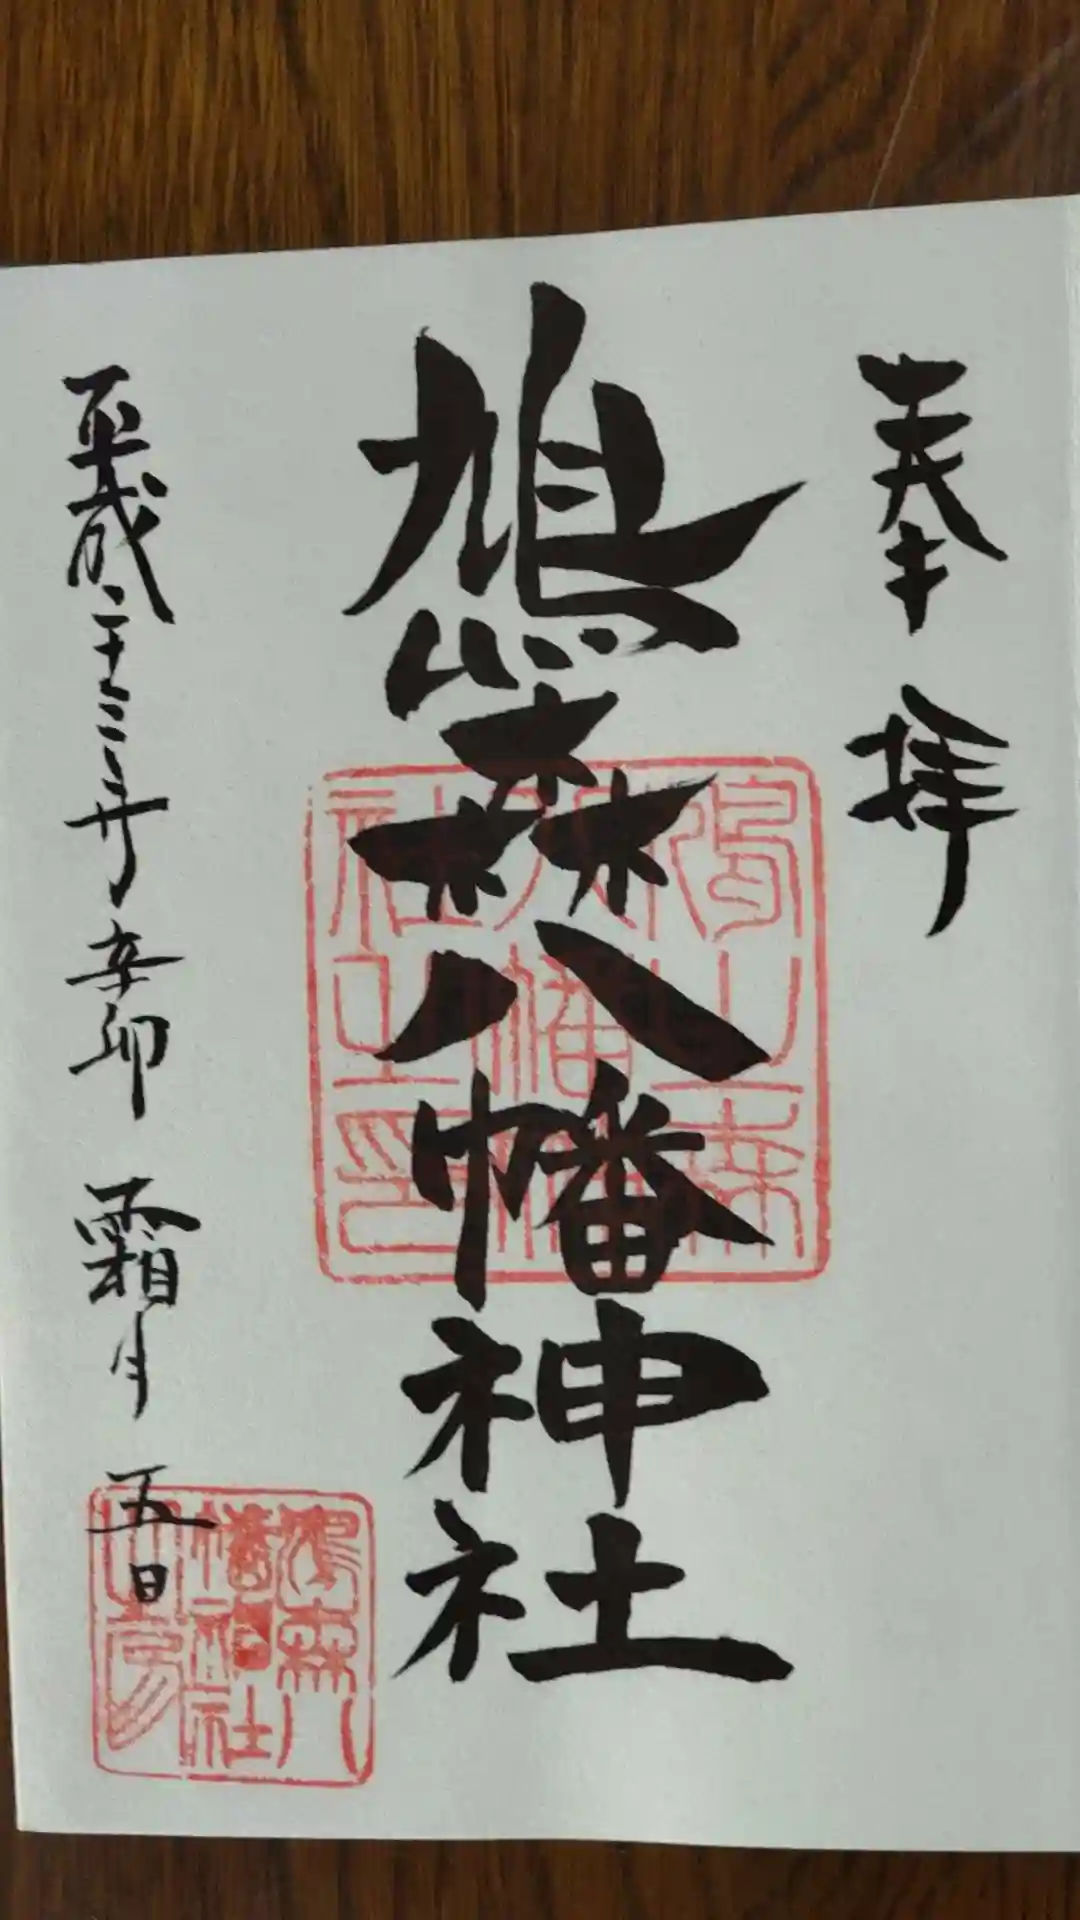 奉拝
鳩森八幡神社
平成二十三年辛卯 霜月 五日
鳩之森
八幡神
社之印
鳩森八
幡神社
之印